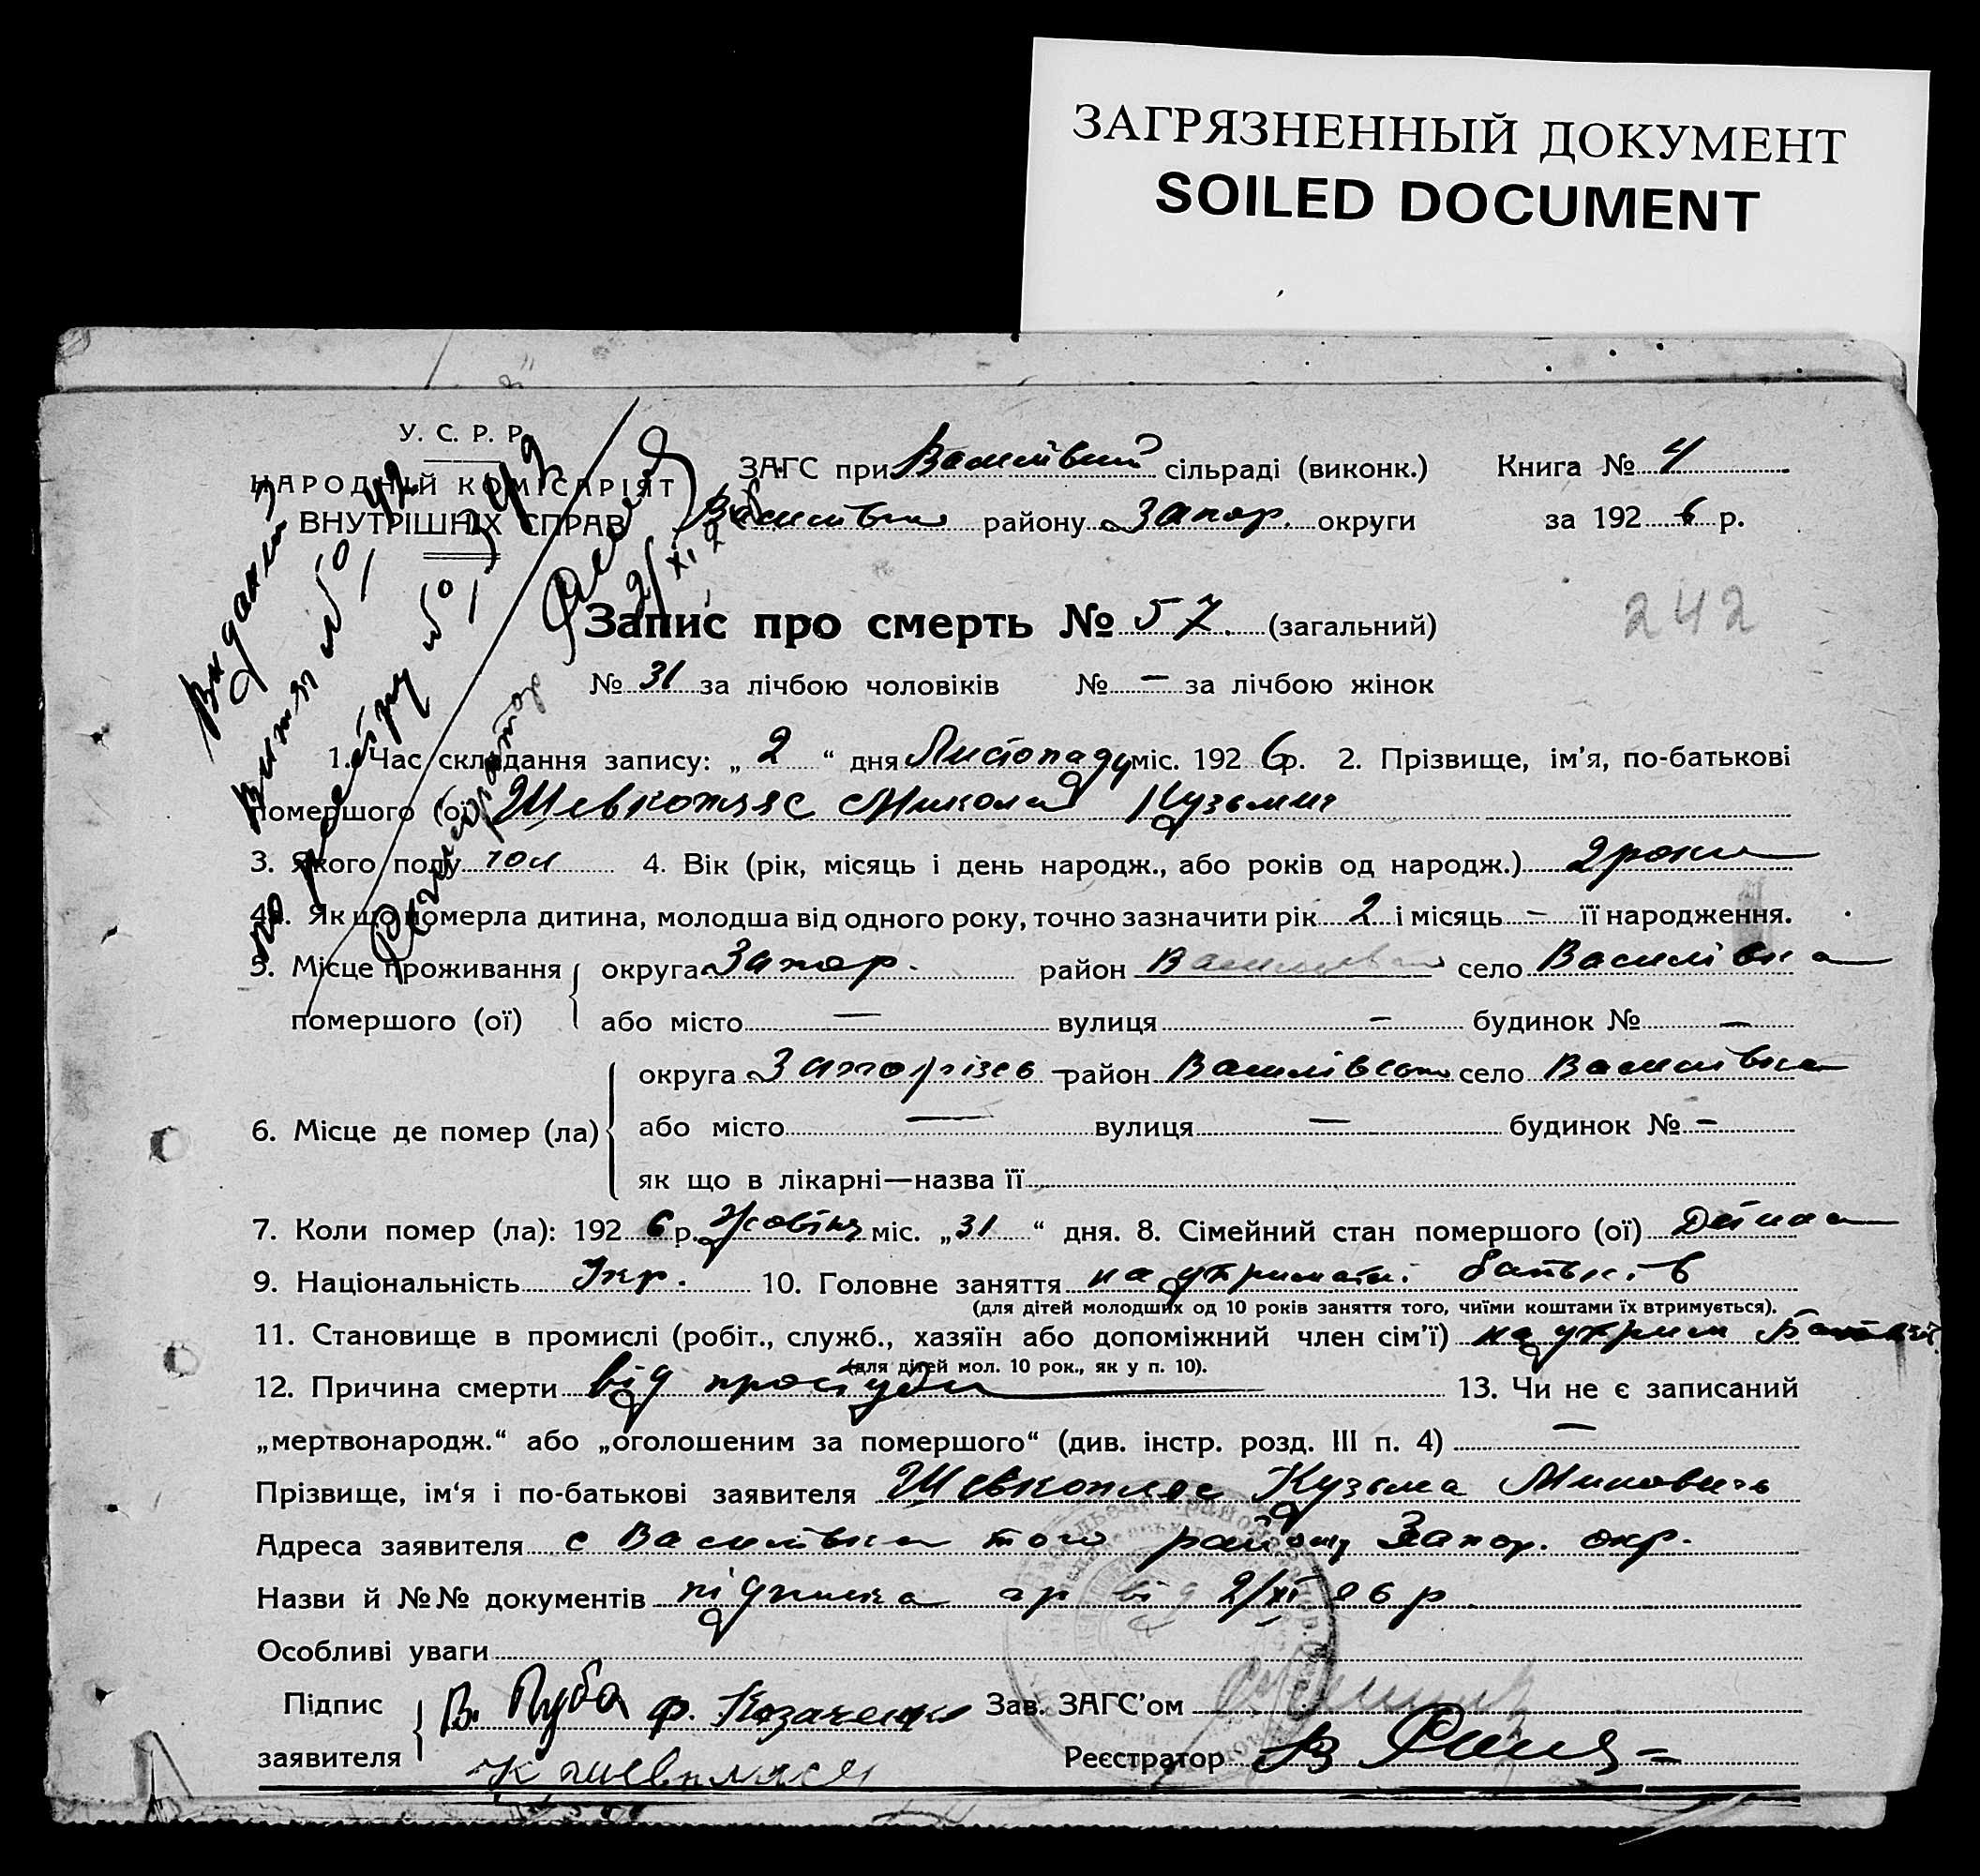 ЗАГРЯЗНЕННЫЙ ДОКУМЕНТ
SOILED DOCUMENT
У. С. Р. Р.
НАРОДНІЙ КОМІСАРІЯТ
ВНУТРІШНІХ СПРАВ
ЗАГС при сільраді (виконк.) Книга № 4
району Запор. округи за 1926 р.
242
Запис про смерть № 57. (загальний)
№ 31 за лічбою чоловіків № — за лічбою жінок
1. Час складання запису: „ 2 “ дня Листопаду міс. 1926 р. 2. Прізвище, ім’я, по-батькові
помершого (ої) Шевкопляс Микола Кузьмич
3. Якого полу чол 4. Вік (рік, місяць і день народж., або років од народж.) 2 роки
4а. Як що померла дитина, молодша від одного року, точно зазначити рік 2 і місяць — її народження.
5. Місце проживання помершого (ої) округа Запор. район село Василівка
або місто — вулиця — будинок № —
6. Місце де помер (ла) округа район село Василівка
або місто — вулиця — будинок № —
як що в лікарні—назва її
7. Коли помер (ла): 1926 р. Жовтня міс. „31 “ дня. 8. Сімейний стан помершого (ої) Дитина
9. Національність Укр. 10. Головне заняття на утриманні батьків
(для дітей молодших од 10 років заняття того, чиїми коштами їх втримується).
11. Становище в промислі (робіт., служб., хазяїн або допоміжний член сім’ї) на утрим
(для дітей мол. 10 рок., як у п. 10).
12. Причина смерти від простуди 13. Чи не є записаний
„мертвонародж.“ або „оголошеним за помершого“ (див. інстр. розд. III п. 4) —
Прізвище, ім‘я і по-батькові заявителя Шевкопляс Кузьма
Адреса заявителя с Василівка того району Запор. окр.
Назви й №№ документів підписка гр від 2/XI 26 р
Особливі уваги
Підпис заявителя В. Ф. Козаченко Зав. ЗАГС’ом
Реєстратор В